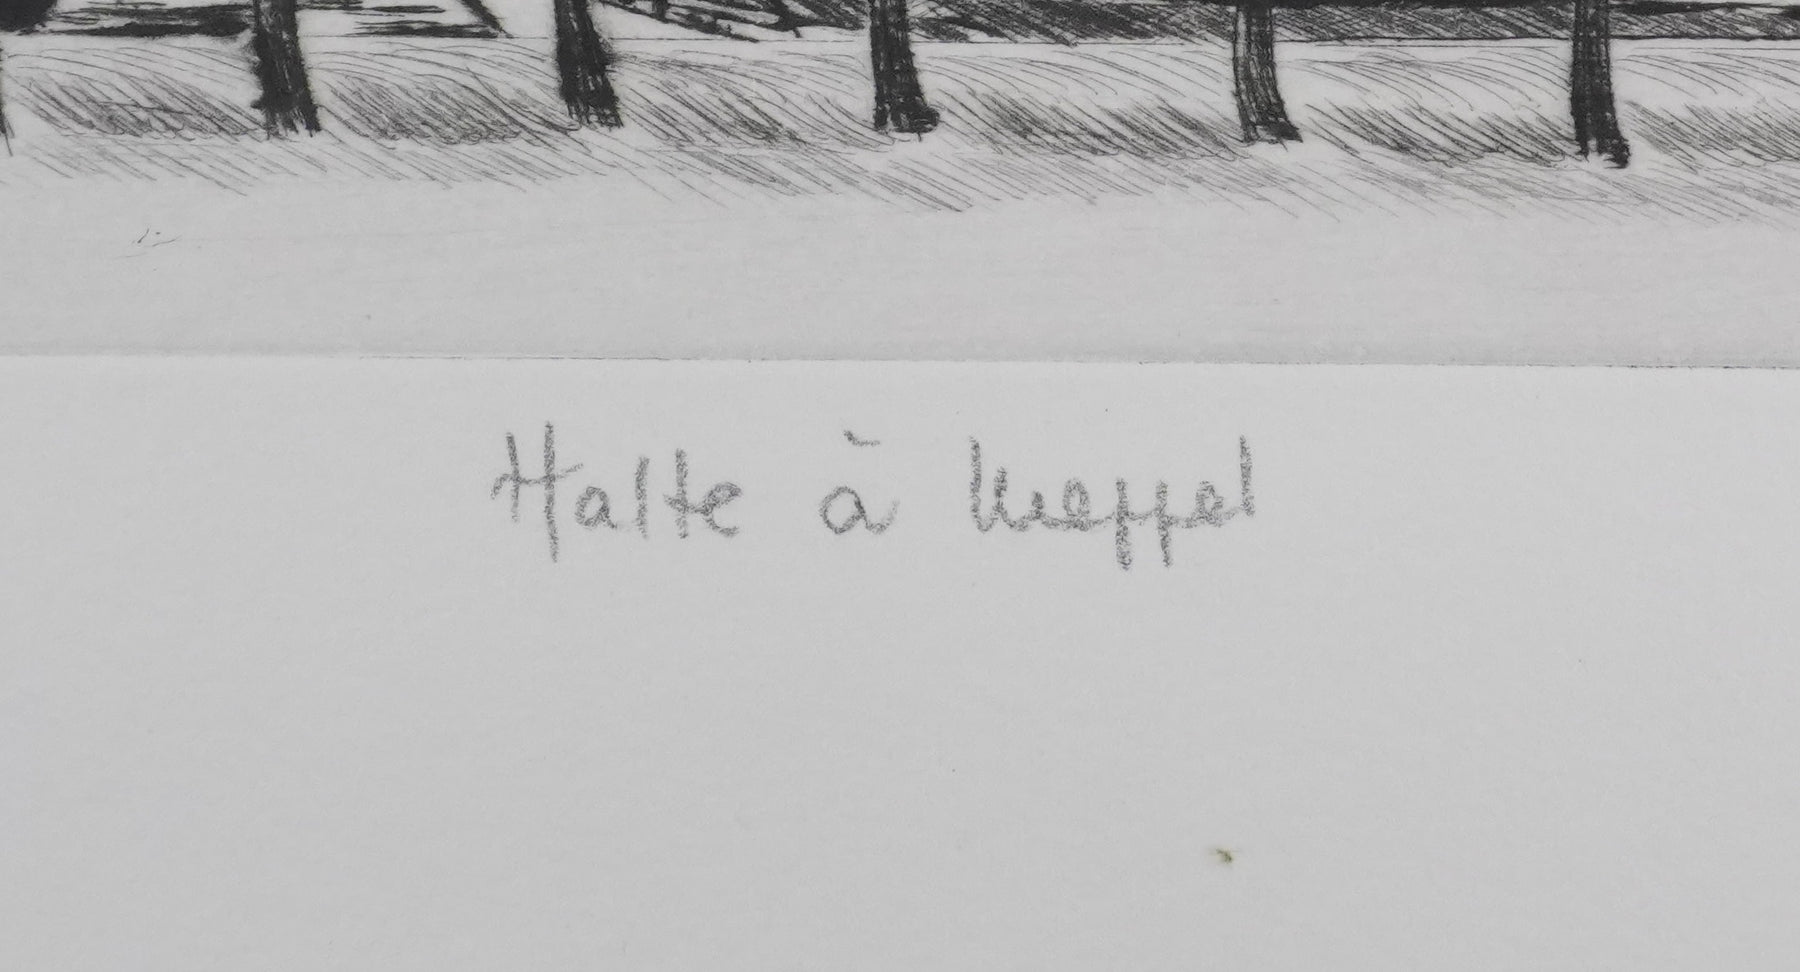 Halte à Meppel